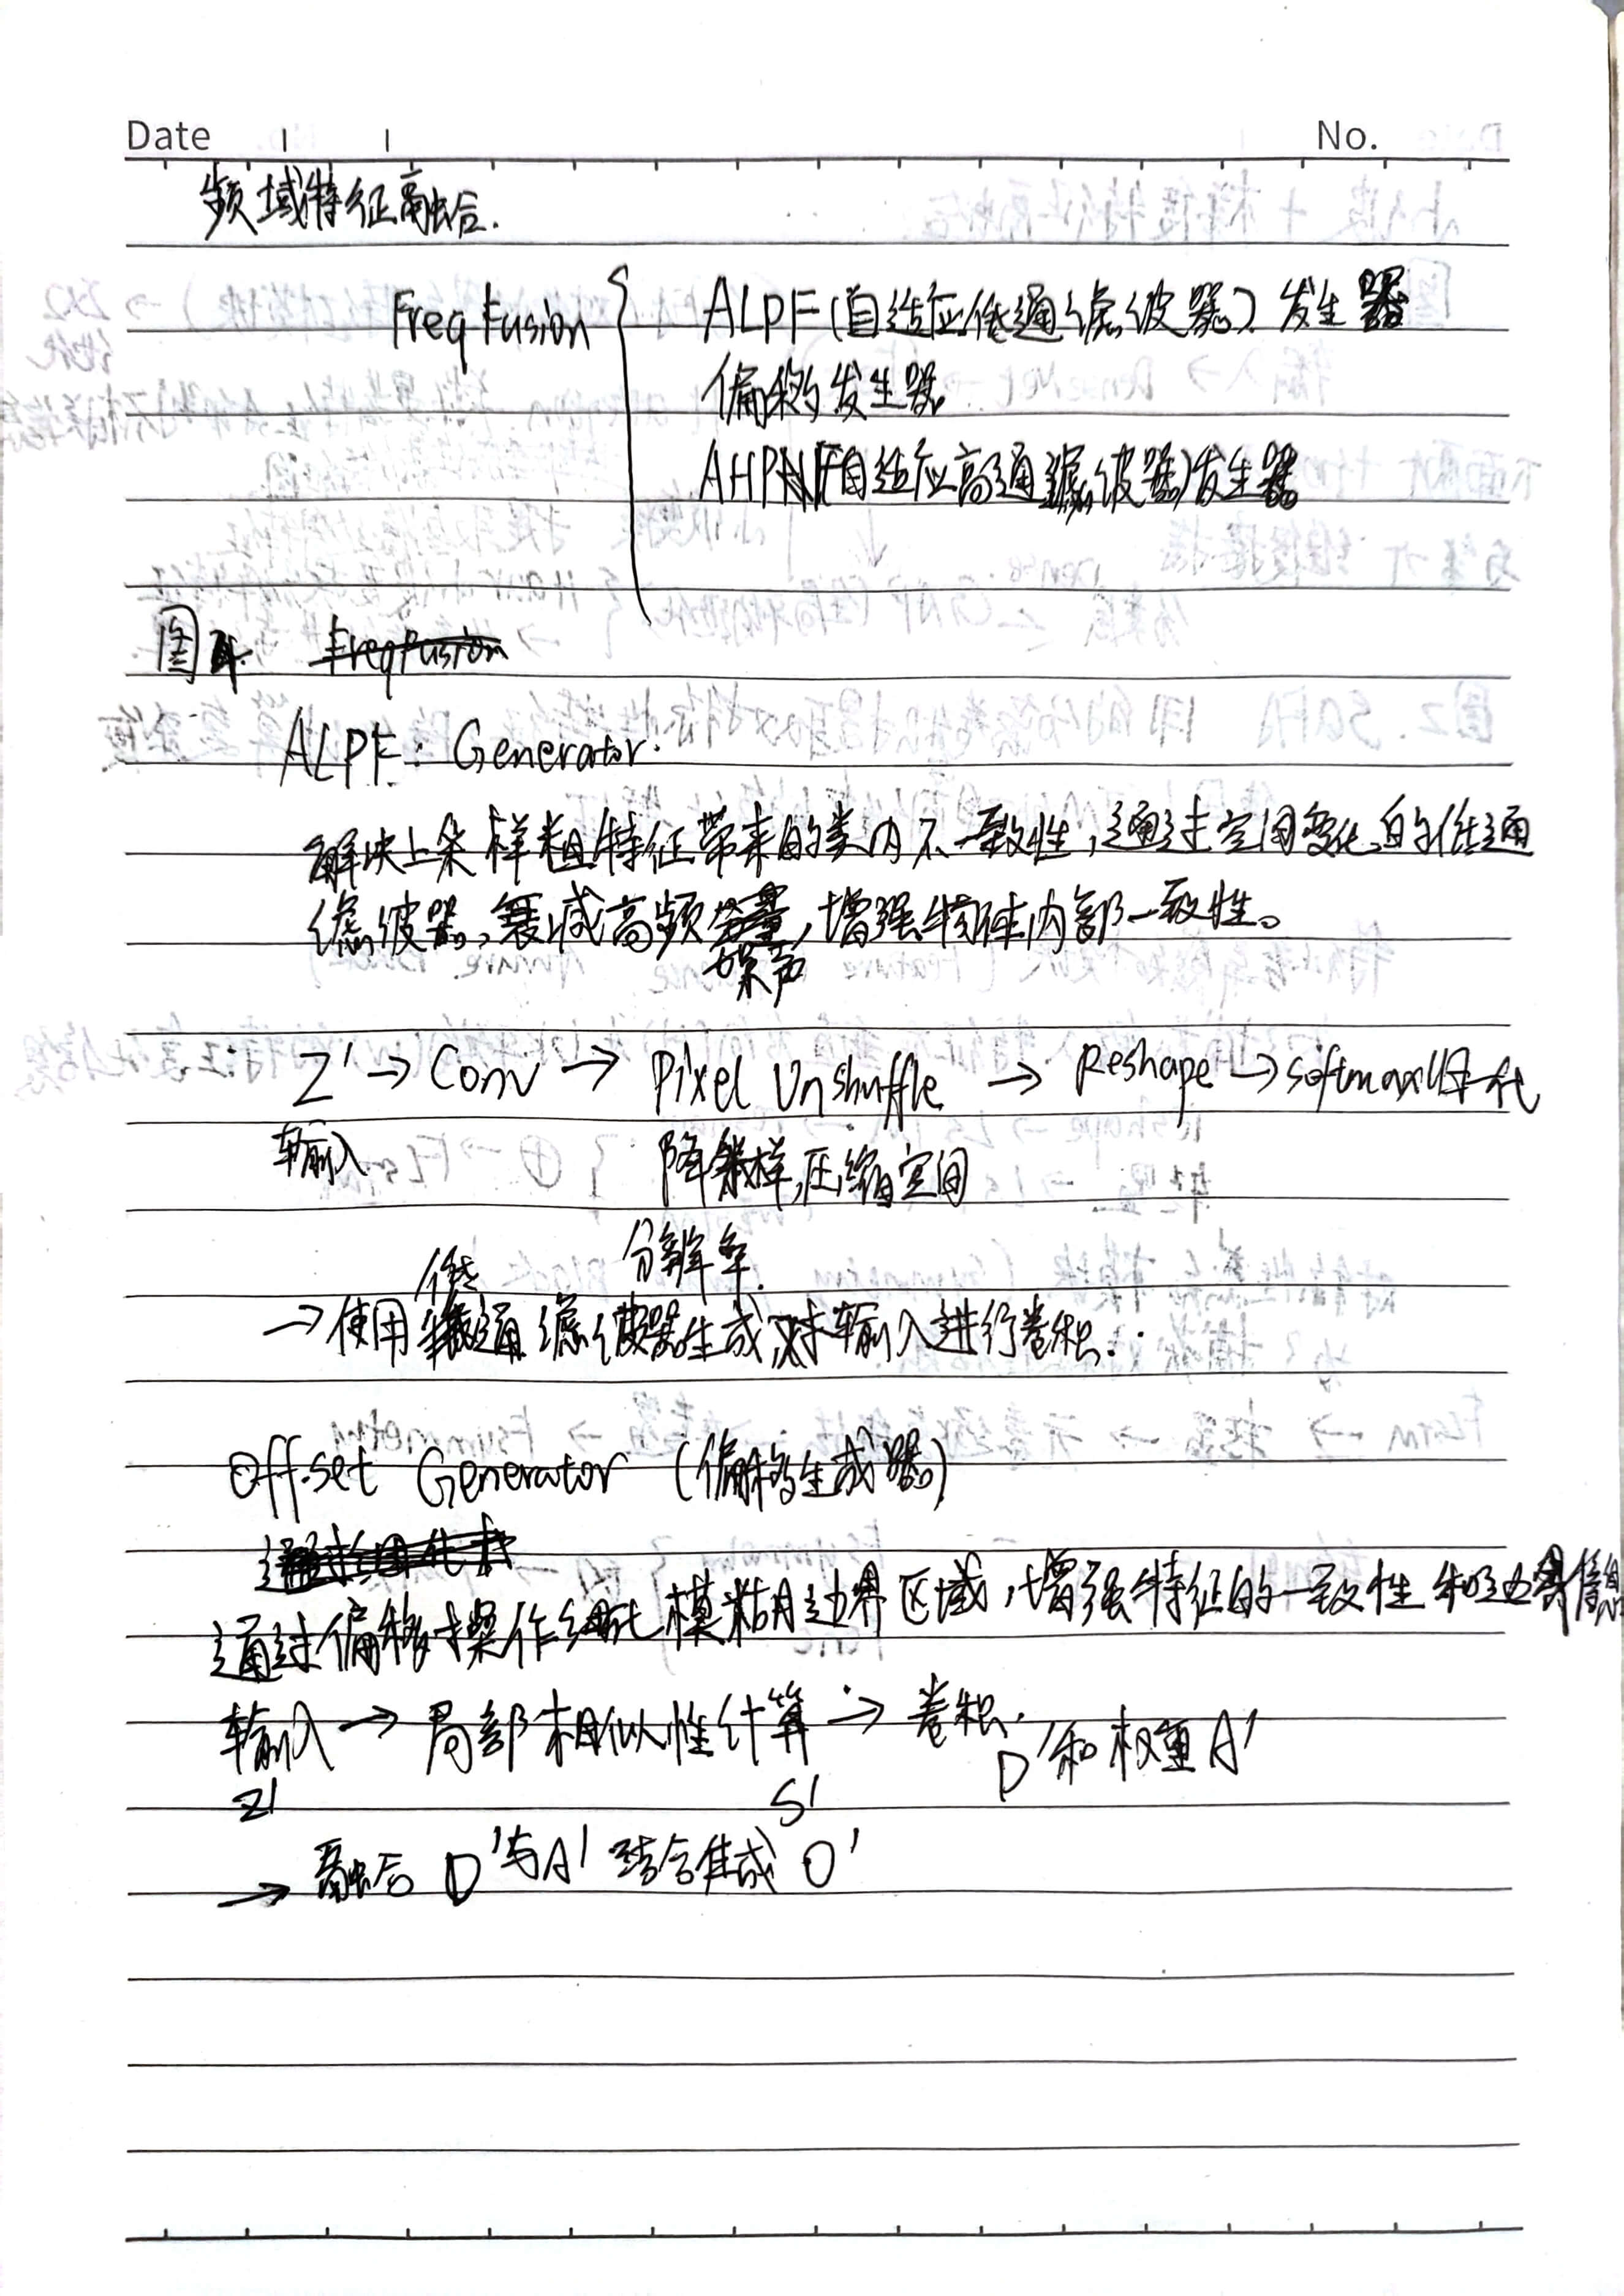 Date
No.
频域特征融合.
FreqFusion
ALPF(自适应低通滤波器)发生器
偏移发生器
AHPF(自适应高通滤波器)发生器
图
FreqFusion
ALPF: Generator.
解决上采样粗特征带来的类内不一致性,通过空间变化的低通
滤波器,衰减高频分量,增强物体内部一致性。
噪声
Z' → Conv → Pixel Unshuffle → Reshape → softmax归一化
输入
降采样,压缩空间
分辨率.
低
→使用通滤波器生成,对输入进行卷积.
Offset Generator (偏移生成器)
通过偏移操作细化模糊边界区域,增强特征的一致性和边界信息
输入 → 局部相似性计算 → 卷积.
D'和权重A'
Z'
S'
→ 融合 D'与A' 结合生成 O'